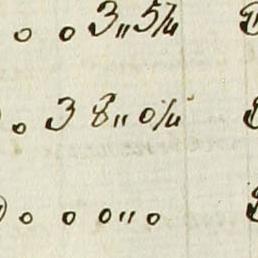 o o 3 „ 5 ¼
o 3 8 „ 0 ¼
o o o „ o